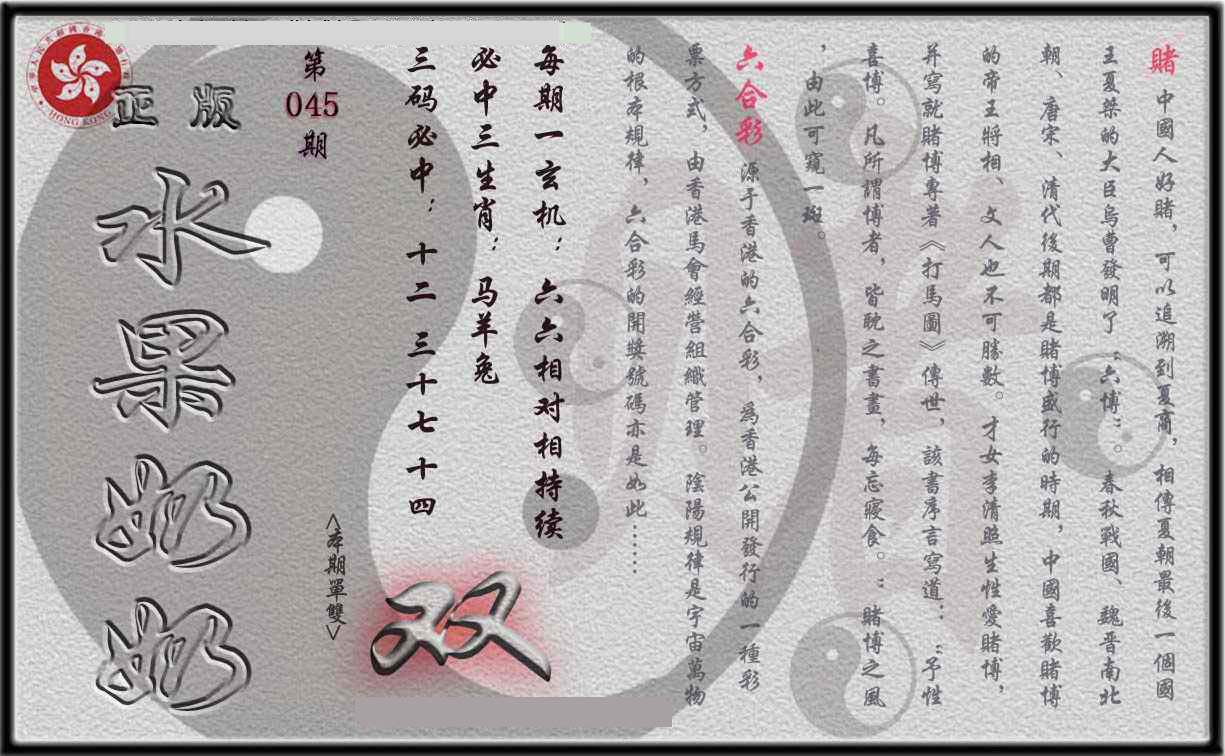 賭 中國人好賭，可以追溯到夏商，相傳夏朝最後一個國
王夏桀的大臣烏曹發明了“六博”。春秋戰國、魏晉南北
朝、唐宋、清代後期都是賭博盛行的時期，中國喜歡賭博
的帝王將相、文人也不可勝數。才女李清照生性愛賭博，
并寫就賭博專著《打馬圖》傳世，該書序言寫道：“予性
喜博。凡所謂博者，皆耽之書畫，每忘寢食。”賭博之風
，由此可窺一斑。
六合彩 源于香港的六合彩，為香港公開發行的一種彩
票方式，由香港馬會經營組織管理。陰陽規律是宇宙萬物
的根本規律，六合彩的開獎號碼亦是如此……
每期一玄机：六六相对相持续
必中三生肖：马羊兔
三码必中：十二 三十七 十四
<本期單雙>
双
第
045
期
正版
水果奶奶
HONG KONG